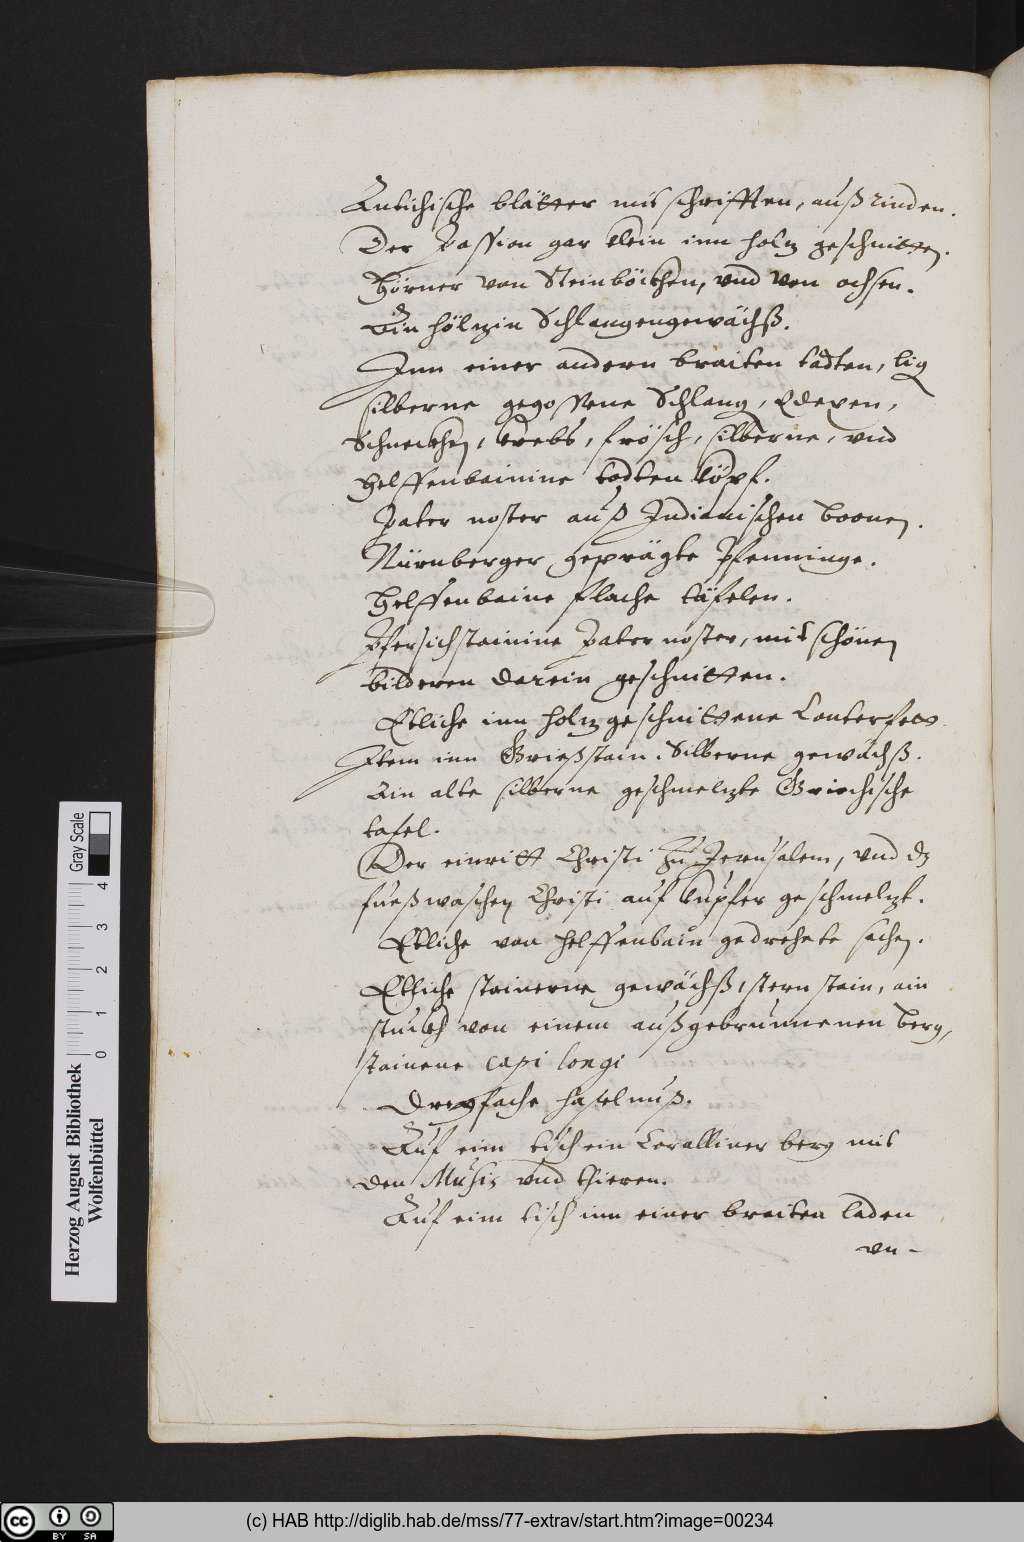 Antichische blätter mit schrifften, auß rinden.
Der Passion gar klein inn holz geschnitten.
Hörner von Steinböckhen, vnd von ochsen.
Ein hölzin Schlangengewächß.
Inn einer andern braiten laden, lig
silberne gegossene Schlang, Edexen,
Schneckhen, krebs, frösch, silberne, vnd
helffenbainine todten köpf.
Pater noster auß Indianischen boonen.
Nürnberger geprägte Pfenninge.
Helffenbaine flache täfelen.
Pfersichstainine Pater noster, mit schönen
bilderen darein geschnitten.
Etliche inn holz geschnittene Conterfett
Item inn Grießstain. Silberne gewächß.
Ein alte silberne geschmelzte Griechische
tafel.
Der einritt Christi zu Jerusalem, vnd dz
fueßwaschen Christi auf kupfer geschmelzt.
Etliche von helffenbain gedrehete sachen.
Etliche stainerne gewächß, stern stain, ain
stuckh von einem außgebrunnenen berg,
stainene capi longi
Dreyfache haselnuß.
Auf eim tisch ein Coralliner berg mit
den Musis vnd thieren.
Auf eim tisch inn einer braiten laden
vn-
Herzog August Bibliothek
Wolfenbüttel
0 1 2 3 4
Gray Scale
cc BY SA
(c) HAB http://diglib.hab.de/mss/77-extrav/start.htm?image=00234